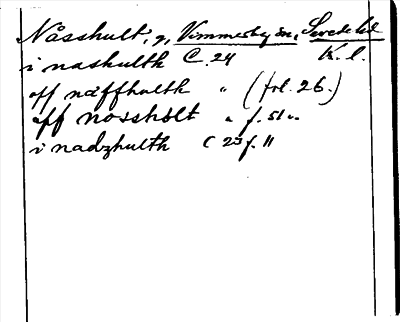 Nässhult, g, Vimmerby sn, Sevede hd
i nashulth C. 24 K. l.
aff näffhulth " (fol. 26.)
aff nosshölt " f. 51 v.
i nadzhulth C 23 f. 11